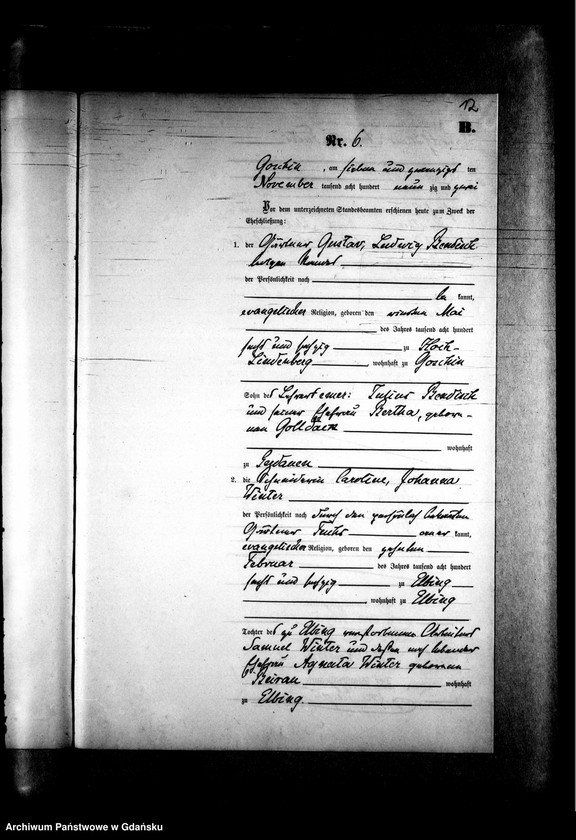 12
B.
Nr. 6.
Goschin, am sieben und zwanzigsten
November tausend acht hundert neunzig und zwei
Vor dem unterzeichneten Standesbeamten erschienen heute zum Zweck der
Eheschließung:
1. der Gärtner Gustav, Ludwig
der Persönlichkeit nach
be kannt,
evangelischer Religion, geboren den Mai
des Jahres tausend acht hundert
sechs und sechzig zu Hoch-
Lindenberg, wohnhaft zu Goschin
Sohn des Julius
und seiner Ehefrau Bertha, gebore-
nen
wohnhaft
zu
2. die Schneiderin Caroline, Johanna
Winter
der Persönlichkeit nach durch den persönlich bekannten
Gärtner aner kannt,
evangelischer Religion, geboren den zehnten
Februar des Jahres tausend acht hundert
sechs und sechzig zu Elbing
, wohnhaft zu Elbing
Tochter des zu Elbing verstorbenen Arbeiters
Samuel Winter und dessen noch lebender
Ehefrau Winter geborene
wohnhaft
zu Elbing.
Archiwum Państwowe w Gdańsku